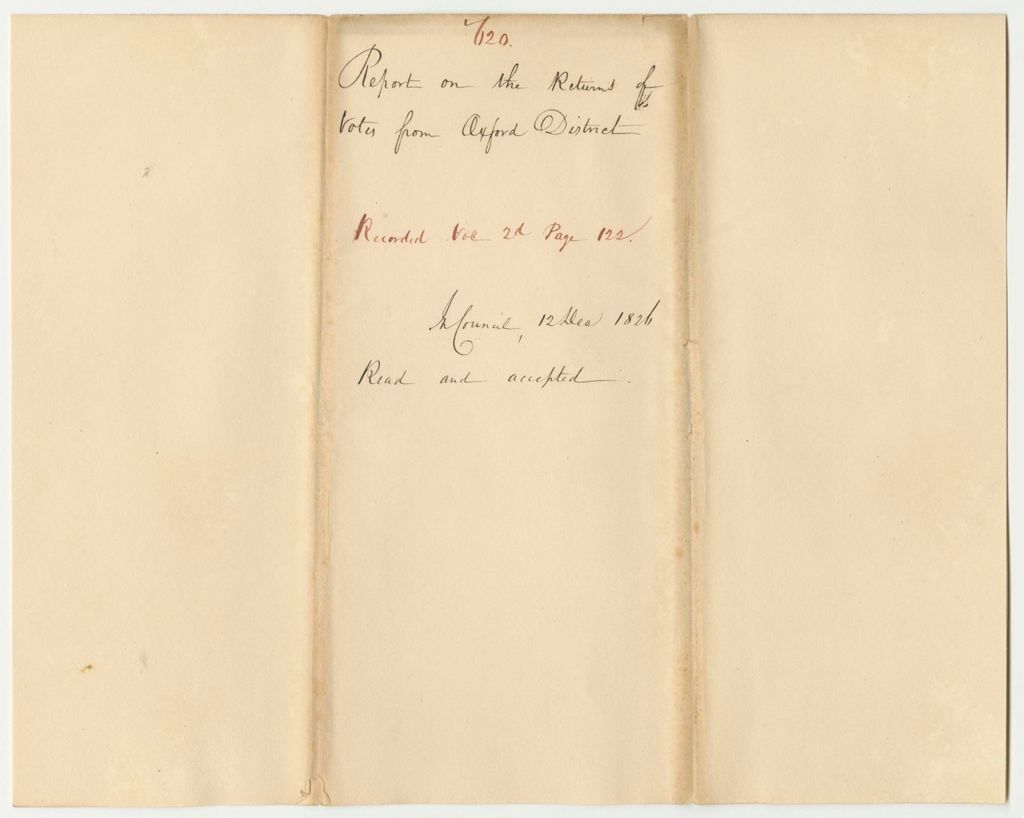 720.
Report on the Returns of
Votes from Oxford District
Recorded Vol 2d Page 122.
In Council, 12 Dec 1826
Read and accepted.